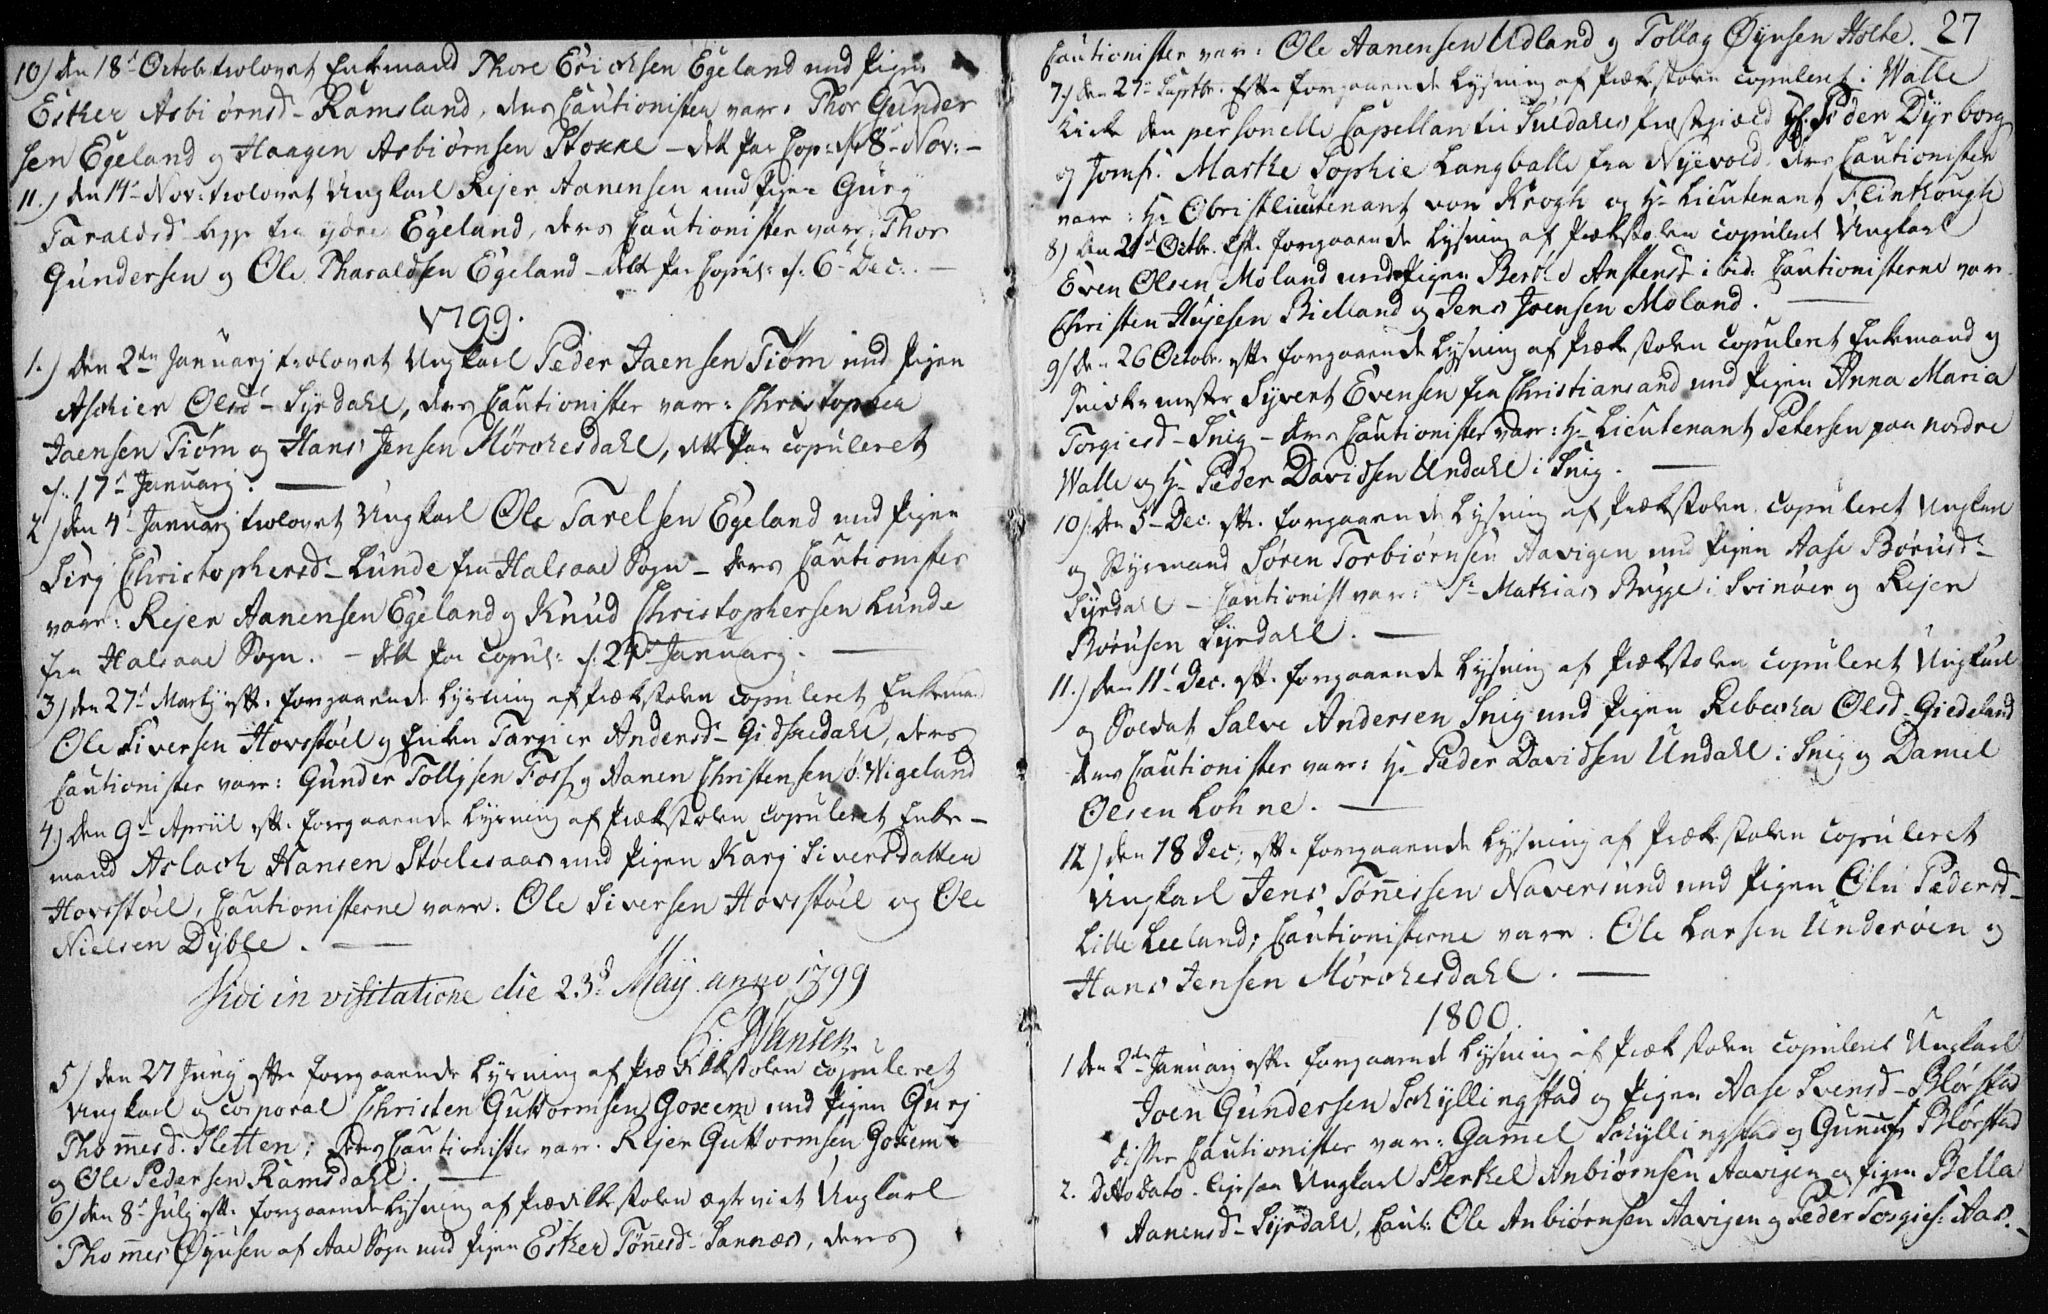 10) den 18d Octobr trolovet Enkemand Thore Erichsen Egeland med Pigen
Esther Asbiørnsd- Ramsland, ders Cautionister var: Thor Gunder
sen Egeland og Haagen Asbiørnsen Stokke - dette Par Cop: d. 8d Nov: -
11.) den 14d Nov: trolovet Ungkarl Rejer Aanensen med Pigen Gurÿ
Taraldsd fra ÿdre Egeland, ders Cautionister var: Thor
Gundersen og Ole Tharaldsen Egeland - dette Par Copul: d: 6d Dec: -
1799.
1.) den 2den Januarj trolovet Ungkarl Peder Jaensen Tiøm med Pigen
Aschier Olsd- Sÿrdahl, ders Cautionister varr: Christopher
Jaensen Tiøm og Hans Jensen Mørchesdahl, dette Par copuleret
d. 17d Januarj.
2) den 4d Januarj trolovet Ungkarl Ole Tarelsen Egeland med Pigen
Sirj Christophersd- Lunde fra Halsaae Sogn - ders Cautionister
varr: Rejer Aanensen Egeland og Knud Christophersen Lunde
fra Halsaae Sogn. - dette Par copul: d: 24d Januarj.
3) den 27d Martj efter forgaaende Lÿsning af Prækestolen copuleret Enkemand
Ole Siversen Hovstøel og Enken Targier Andersd- Gidskedahl, ders
Cautionister varr: Gunder Tollejsen Foss og Aanen Christensen ø: Wigeland
4.) den 9d Apriil efter forgaaende Lÿsning af Prækestolen copuleret Enke-
mand Aslach Hansen Støelesaas med Pigen Karj Siversdatter
Hovstøel, Cautionisterne varr: Ole Siversen Hovstøel og Ole
Nielsen Dÿble.
Vidi in visitatione die 23d Maij anno 1799
Hansen.
5) den 27 Junÿ efter forgaaende Lÿsning af Prædikestolen copuleret
Ungkarl og Corporal Christen Guttormsen Goxem med Pigen Gurj
Thom̄esd. Sletten; ders Cautionister var: Rejer Guttormsen Goxem
og Ole Pedersen Ramsdahl.
6) den 8d Julj efter forgaaende Lÿsning af Prædikestolen ægteviet Ungkarl
Thom̄es Øÿnsen af Aae Sogn med Pigen Esther Tøn̄esd- Sannæs, ders
27
Cautionister var: Ole Aanensen Udland og Tollag Øÿnsen Holte.
7.) den 27d Septbr. Efter forgaaende Lÿsning af Prækestolen copuleret i Walle
Kirke den personelle Capellan til Suldahls Præstegield Hr. Peder Dÿrborg
og Jomfr. Marthe Sophie Langballe fra Nÿevold, ders Cautionister
varr: Hr Obristlieutenant von Krogh og Hr Lieutenant Flinthough
8) den 21d Octbr. Efter forgaaende Lÿsning af Prækestolen copuleret Ungkarl
Even Olsen Moland med Pigen Berthe Anstensd- ibid: Cautionisterne var
Christen Hujesen Bielland og Jens Joensen Moland.
9) den 26 Octobr. efter forgaaende Lÿsning af Prækestolen copuleret Enkemand og
Snedkermester Sÿvert Evensen fra Christiansand med Pigen Anna Maria
Torgiersd- Snig - ders Cautionister varr: Hr Lieutenant Petersen paa nordre
Walle og Hr Peder Davidsen Undahl i Snig.
10). den 5d Dec. efter forgaaende Lÿsning af Prækestolen copuleret Ungkarl
og Stÿrmand Søren Torbiørnsen Aavigen med Pigen Aase Børusd-
Sÿrdahl - Cautionist var: Sr Mathias Brÿgge i Svinøer og Rejer
Børusen Sÿrdahl.
11.) den 11d Dec. efter forgaaende Lÿsning af Prækestolen copuleret Ungkarl
og Soldat Salve Andersen Snig med Pigen Rebecka Olsd- Giedeland
ders Cautionister varr: Hr Peder Davidsen Undahl i Snig og Daniel
Olsen Lohne.
12) den 18 Dec: efter forgaaende Lÿsning af Prækestolen copuleret
Ungkarl Jens Tøn̄essen Naversund med Pigen Olu Pedersd-
Lille Leeland; Cautionisterne varr: Ole Larsen Underøen og
Hans Jensen Mørchesdahl.
1800
1 den 2den Januarj efter forgaaende Lÿsning af Prækestolen copuleret Ungkarl
Joen Gundersen Schÿllingstad og Pigen Aase Svensd- Blørstad
disses Cautionister var: Gam̄el Schÿllingstad og Gun̄uf Blørstad
2. Ditto Dato ligesaa Ungkarl Berthel Anbiørnsen Aavigen og Pigen Bella
Aanensd- Sÿrdahl, Caut: Ole Anbiørnsen Aavigen og Peder Torgies: Aas.